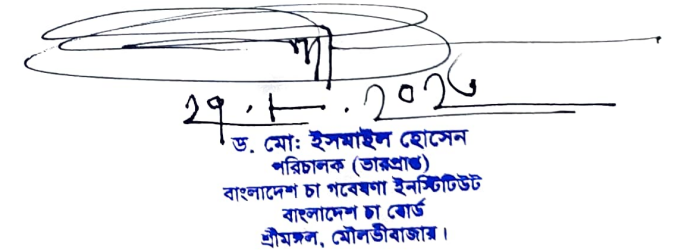 ২৭. .২০২৬
ড. মো: ইসমাইল হোসেন
পরিচালক (ভারপ্রাপ্ত)
বাংলাদেশ চা গবেষণা ইনস্টিটিউট
বাংলাদেশ চা বোর্ড
শ্রীমঙ্গল, মৌলভীবাজার।